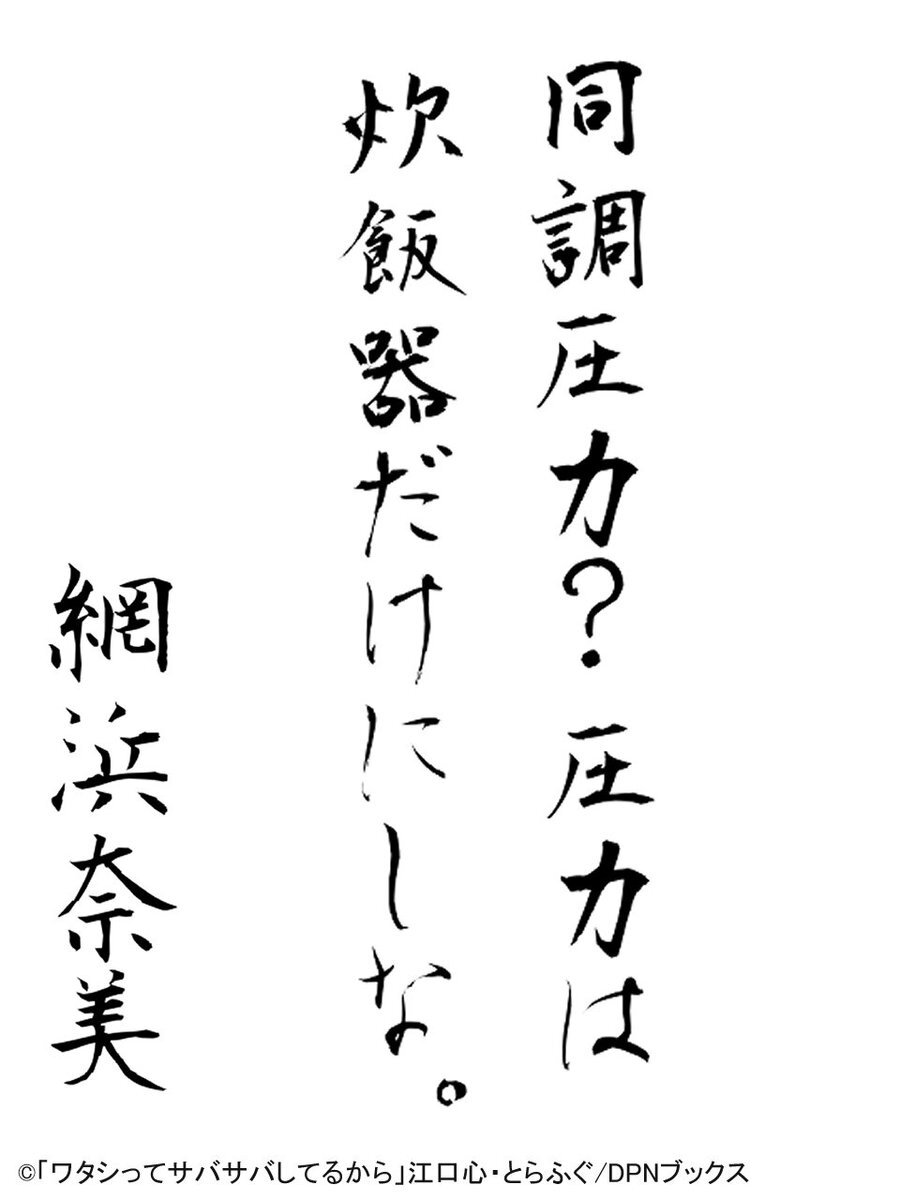 同調圧力？圧力は
炊飯器だけにしな。
網浜奈美
©「ワタシってサバサバしてるから」江口心・とらふぐ/DPNブックス